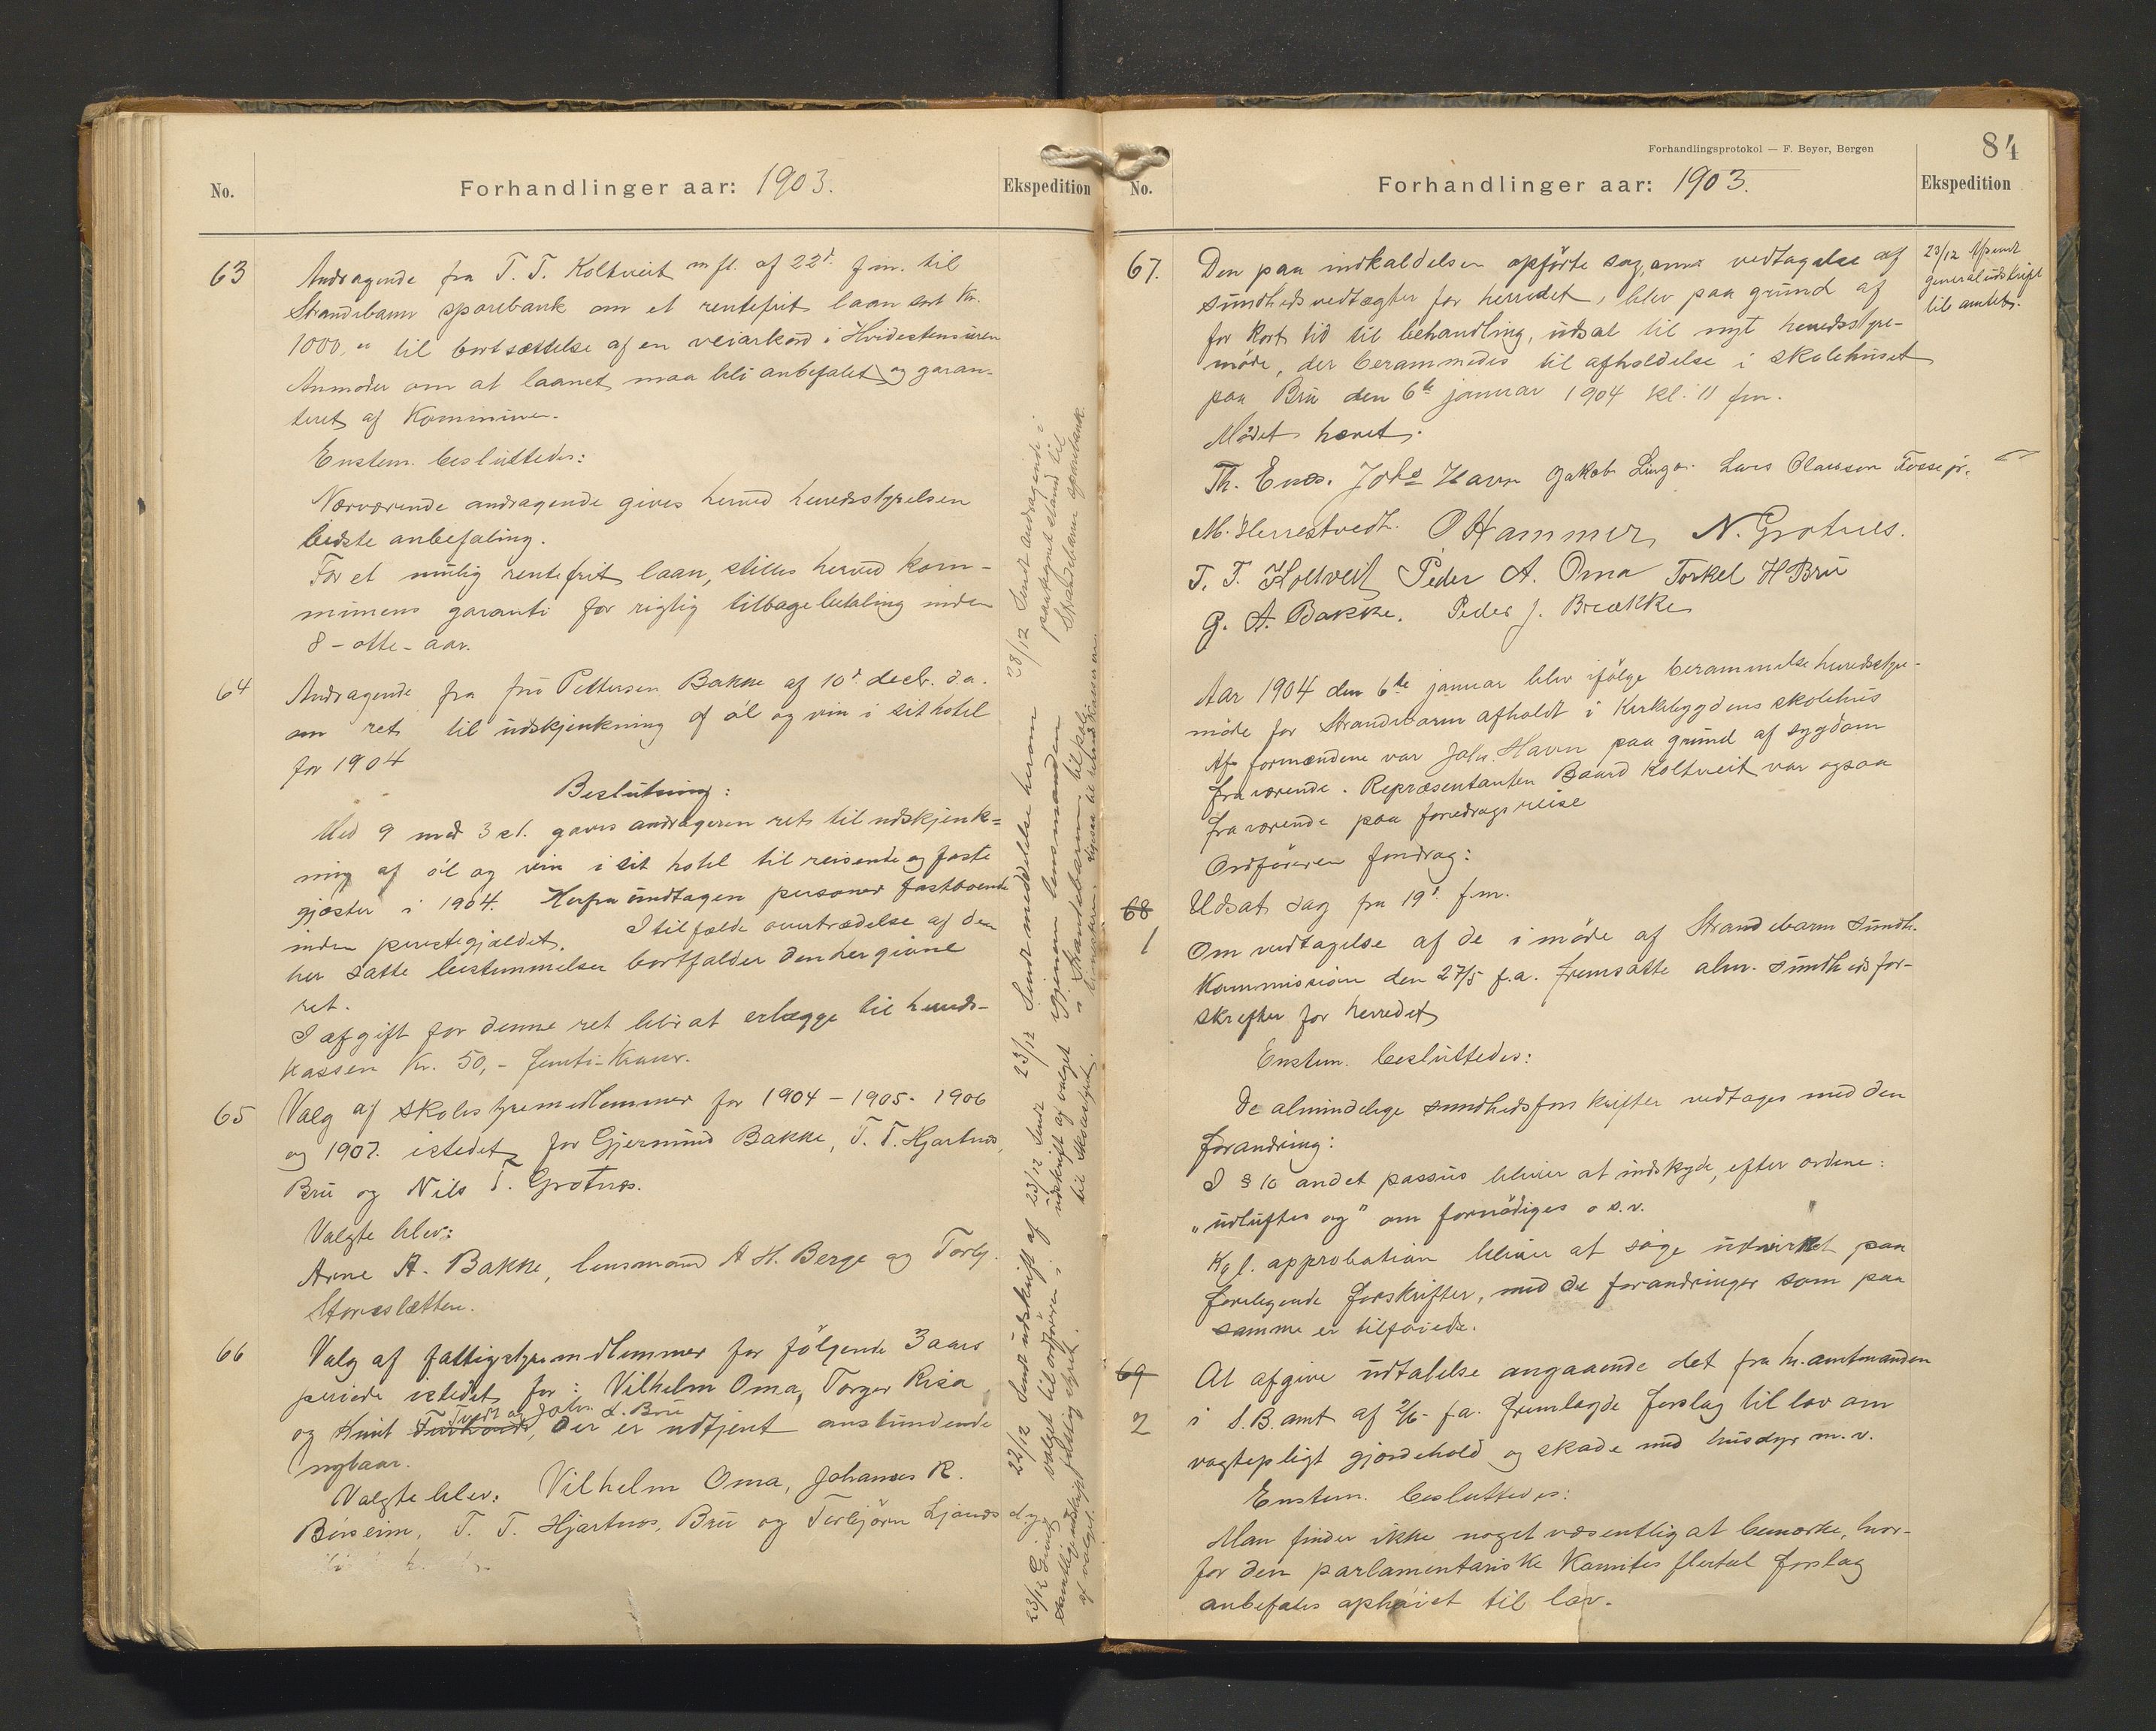 No.
Forhandlinger aar: 1903.
Ekspedition
63
Andragende fra T. T. Koltveit m fl. af 22d. f.m. til
Strandebarm sparebank om et rentefrit laan stort Kr.
1000,00 til bortsættelse af en veiarkord i
Anmoder om at laanet maa bli anbefalet og garan-
teret af Kommunen.
Enstem. besluttedes:
Nærværende andragende gives herved herredsstyrelsen
bedste anbefaling.
For et mulig rentefrit laan, stilles herved kom-
munens garanti for rigtig tilbagebetaling inden
8 - otte - aar.
64
Andragende fra fru Pettersen Bakke af 10d. decbr. d.a.
om ret til udskjenkning af öl og vin i sit hotel
for 1904
Beslutning:
Med 9 mod 3 st. gaves andrageren ret til udskjenk=
ning af öl og vin i sit hotel til reisende og faste
gjæster i 1904. Herfra undtagen personer fastboende
inden prestegjældet. I tilfælde overtrædelse af den
her satte bestemmelse bortfalder den her givne
ret.
I afgift for denne ret blir at erlægge til herreds-
kassen Kr. 50,- femti- Kroner.
65
Valg af skolestyremedlemmer for 1904 - 1905 - 1906
og 1907. istedet for Gjermund Bakke, T. T. Hjartnæs,
Bru og Nils T. Grotnæs.
Valgte blev:
Arne A. Bakke, lensmand A H. Berge og Torbj.
Storesletten.
66
Valg af fattigstyremedlemmer for fölgende 3 aars
periode istedet for: Vilhelm Oma, Torger Risa
Tvedt og Johs. L. Bru
og Knut, der er udtjent anstundende
nytaar.
Valgte blev: Vilhelm Oma, Johannes R.
Börseim, T. T. Hjartnæs, Bru og Torbjörn Ljones
28/12 Sendt andragende i
paategnet stand til
Strandebarm sparebank.
23/12 Sendt meddelelse herom
igjennem lensmanden
i Strandebarm til
23/12 Sendt udskrift af
udskrift af valget
til Skolestyret.
22/12 Sendt udskrift af
valget til ordföreren i
fattigstyret.
23/12
samtlige
af valget.
Forhandlingsprotokol — F. Beyer, Bergen
84
No.
Forhandlinger aar: 1903.
Ekspedition
67.
Den paa indkaldelsen opförte sag, om vedtagelse af
sundhedsvedtægter for herredet, blev paa grund af
for kort tid til behandling, udsat til nyt herredsstyre-
möde, der berammedes til afholdelse i skolehuset
paa Bru den 6te januar 1904 kl. 11 fm.
Mödet hævet.
23/12
generaludskrift
til amtet.
Th. Enæs. Johs Havn Jakob Linga. Lars Olausson Fosse jr.
M. Herrestvedt. O Hammer N. Grotnes.
T. T. Koltveit Peder A. Oma Torkel H Bru
G. A. Bakke. Peder J. Brække
Aar 1904 den 6te januar blev ifölge berammelse herredsstyre-
möde for Strandebarm afholdt i Kirkebygdens skolehus
Af formændene var Johs. Havn paa grund af sygdom
fraværende. Repræsentanten Baard Koltveit var ogsaa
fraværende paa foredragsreise
Ordföreren foredrog:
68
1
Udsat sag fra 19d. f.m.
Om vedtagelse af de i möde af Strandebarm Sundh.
Kommission den 27/5 f.a. fremsatte alm. sundhedsfor-
skrifter for herredet
Enstem. besluttedes:
De almindelige sundhedsforskrifter vedtages med den
forandring:
I § 10 andet passus bliver at indskyde, efter ordene:
„udluftes og" om fornödiges o s.v.
Kgl. approbation bliver at söge udvirket paa
foreliggende forskrifter, med de forandringer som paa
samme er tilföiede.
69
2
At afgive udtalelse angaaende det fra hr. amtmanden
i S. B. amt af 2/6 f.a. fremlagde forslag til lov om
vogtepligt gjordehold og skade med husdyr m.v.
Enstem. besluttedes:
Man finder ikke noget væsentlig at bemærke, hvor-
for den parlamentariske Komites flertal forslag
anbefales ophöiet til lov.